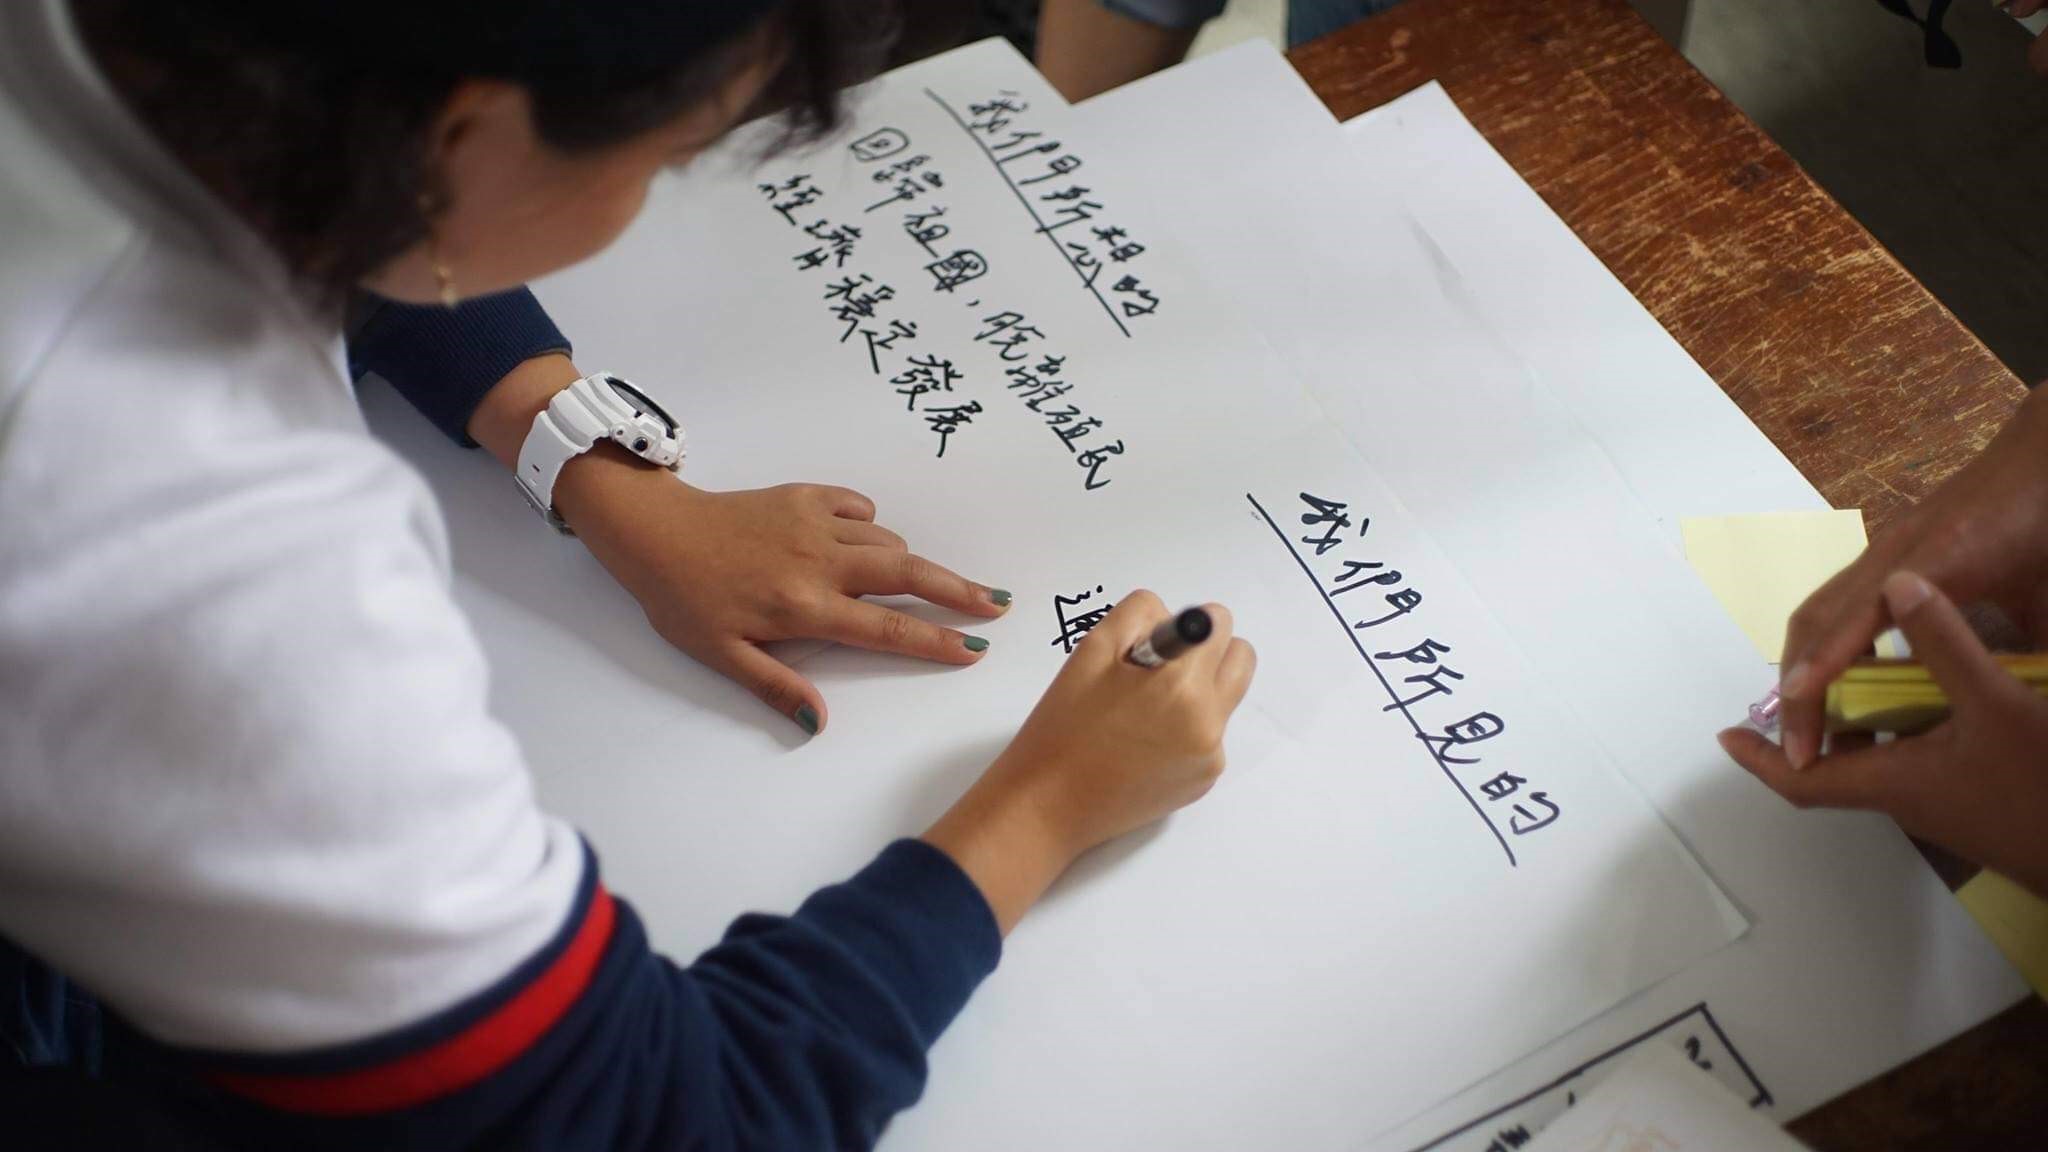 我們所想的
回歸祖國，脫離殖民
經濟穩定發展
我們所見的